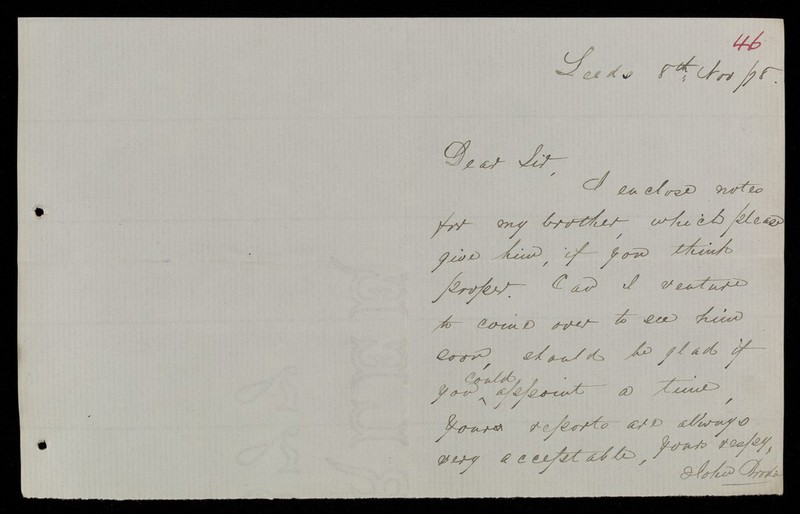 46
Leeds 8th Nov /78.
Dear Sir,
I enclose notes
for my brother, which please
give him, if you think
proper. Can I venture
to come over to see him
soon, should be glad if
you could appoint a time,
Yours reports are always
very acceptable, Yours respy,
John